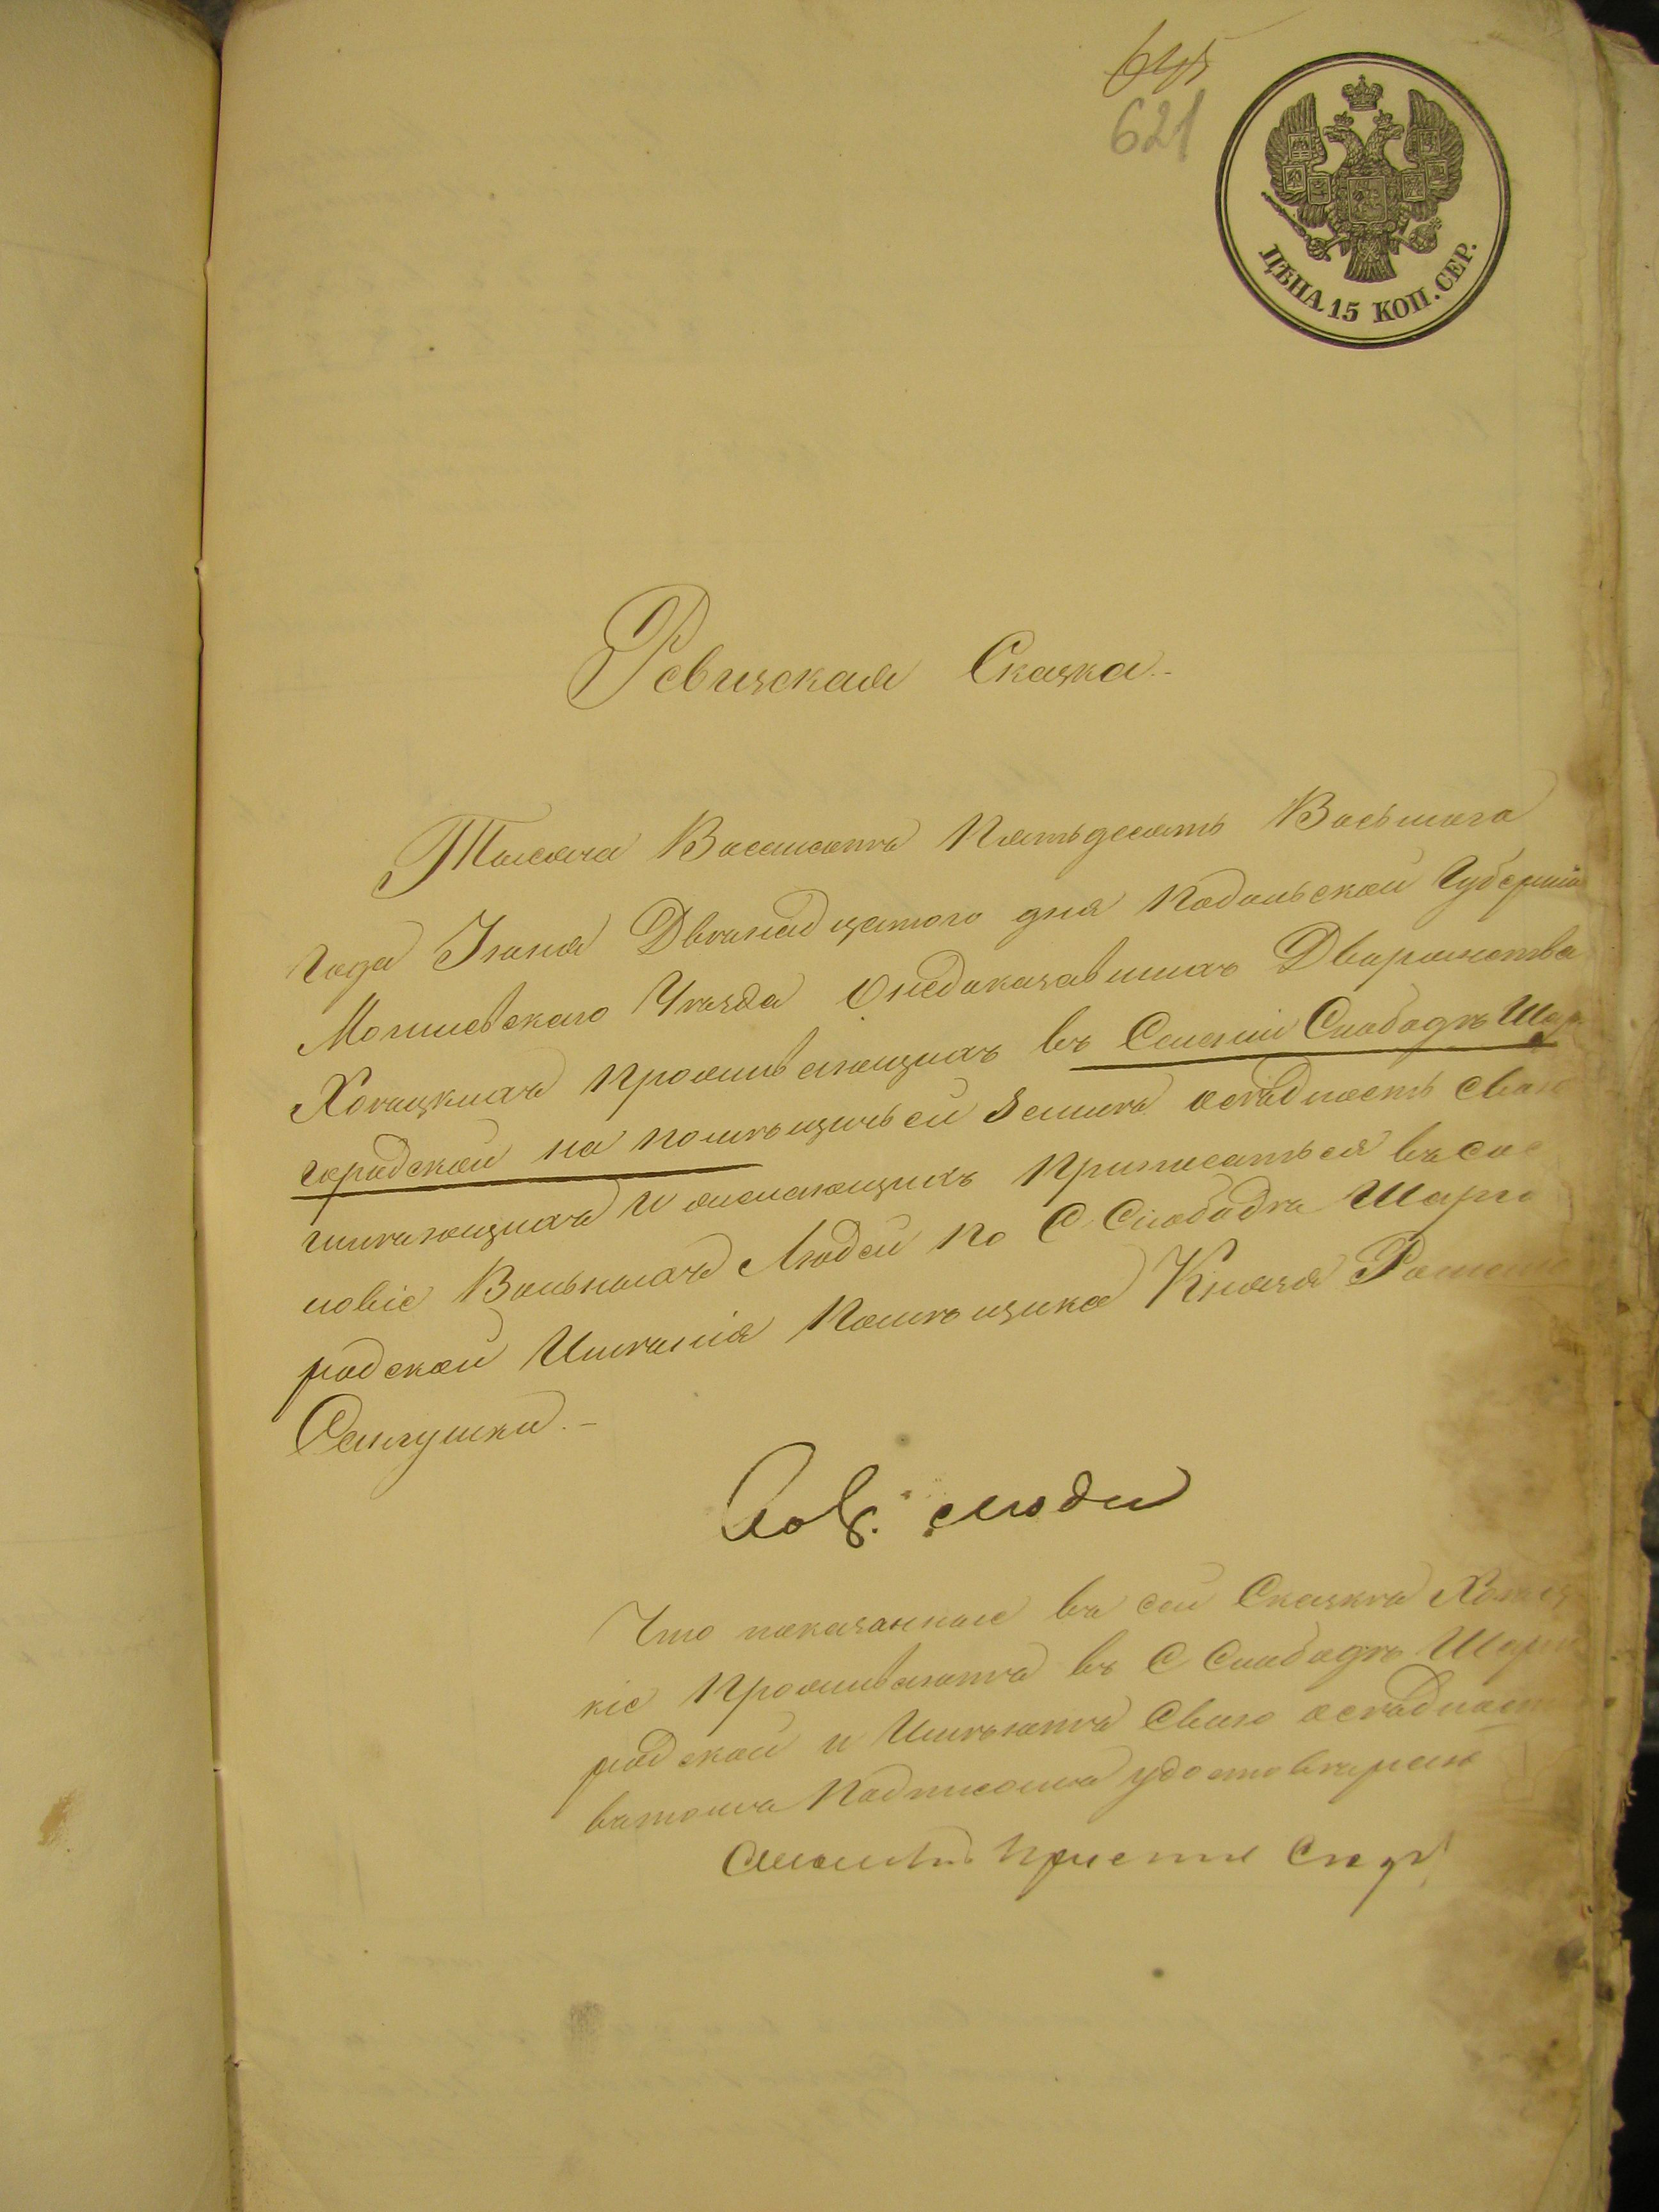 645
621
ЦѢНА 15 КОП. СЕР.
Ревизская Сказка.-
Тысяча Восемсотъ Пятьдесятъ Восьмаго
года Іюня Двѣнадцатого дня Подольской Губерніи
Могилевскаго Уѣзда О недоказавшихъ Дворянства
Хотецкихъ Проживающихъ въ Селеніи Слободѣ Шар
городской на помѣщичьей Землѣ осѣдность свою
имѣющихъ и желающихъ Приписаться въ сос
ловіе Вольныхъ Людей По С. Слободѣ Шарго
родской Имѣнія Помѣщика Князя Романа
Сангушки.-
люди
Что показанные въ сей Сказкѣ
кіе Проживаютъ въ С Слободѣ Шарго
родской и Имѣютъ Свою осѣдность
вътомъ Подписомъ удостовѣряю